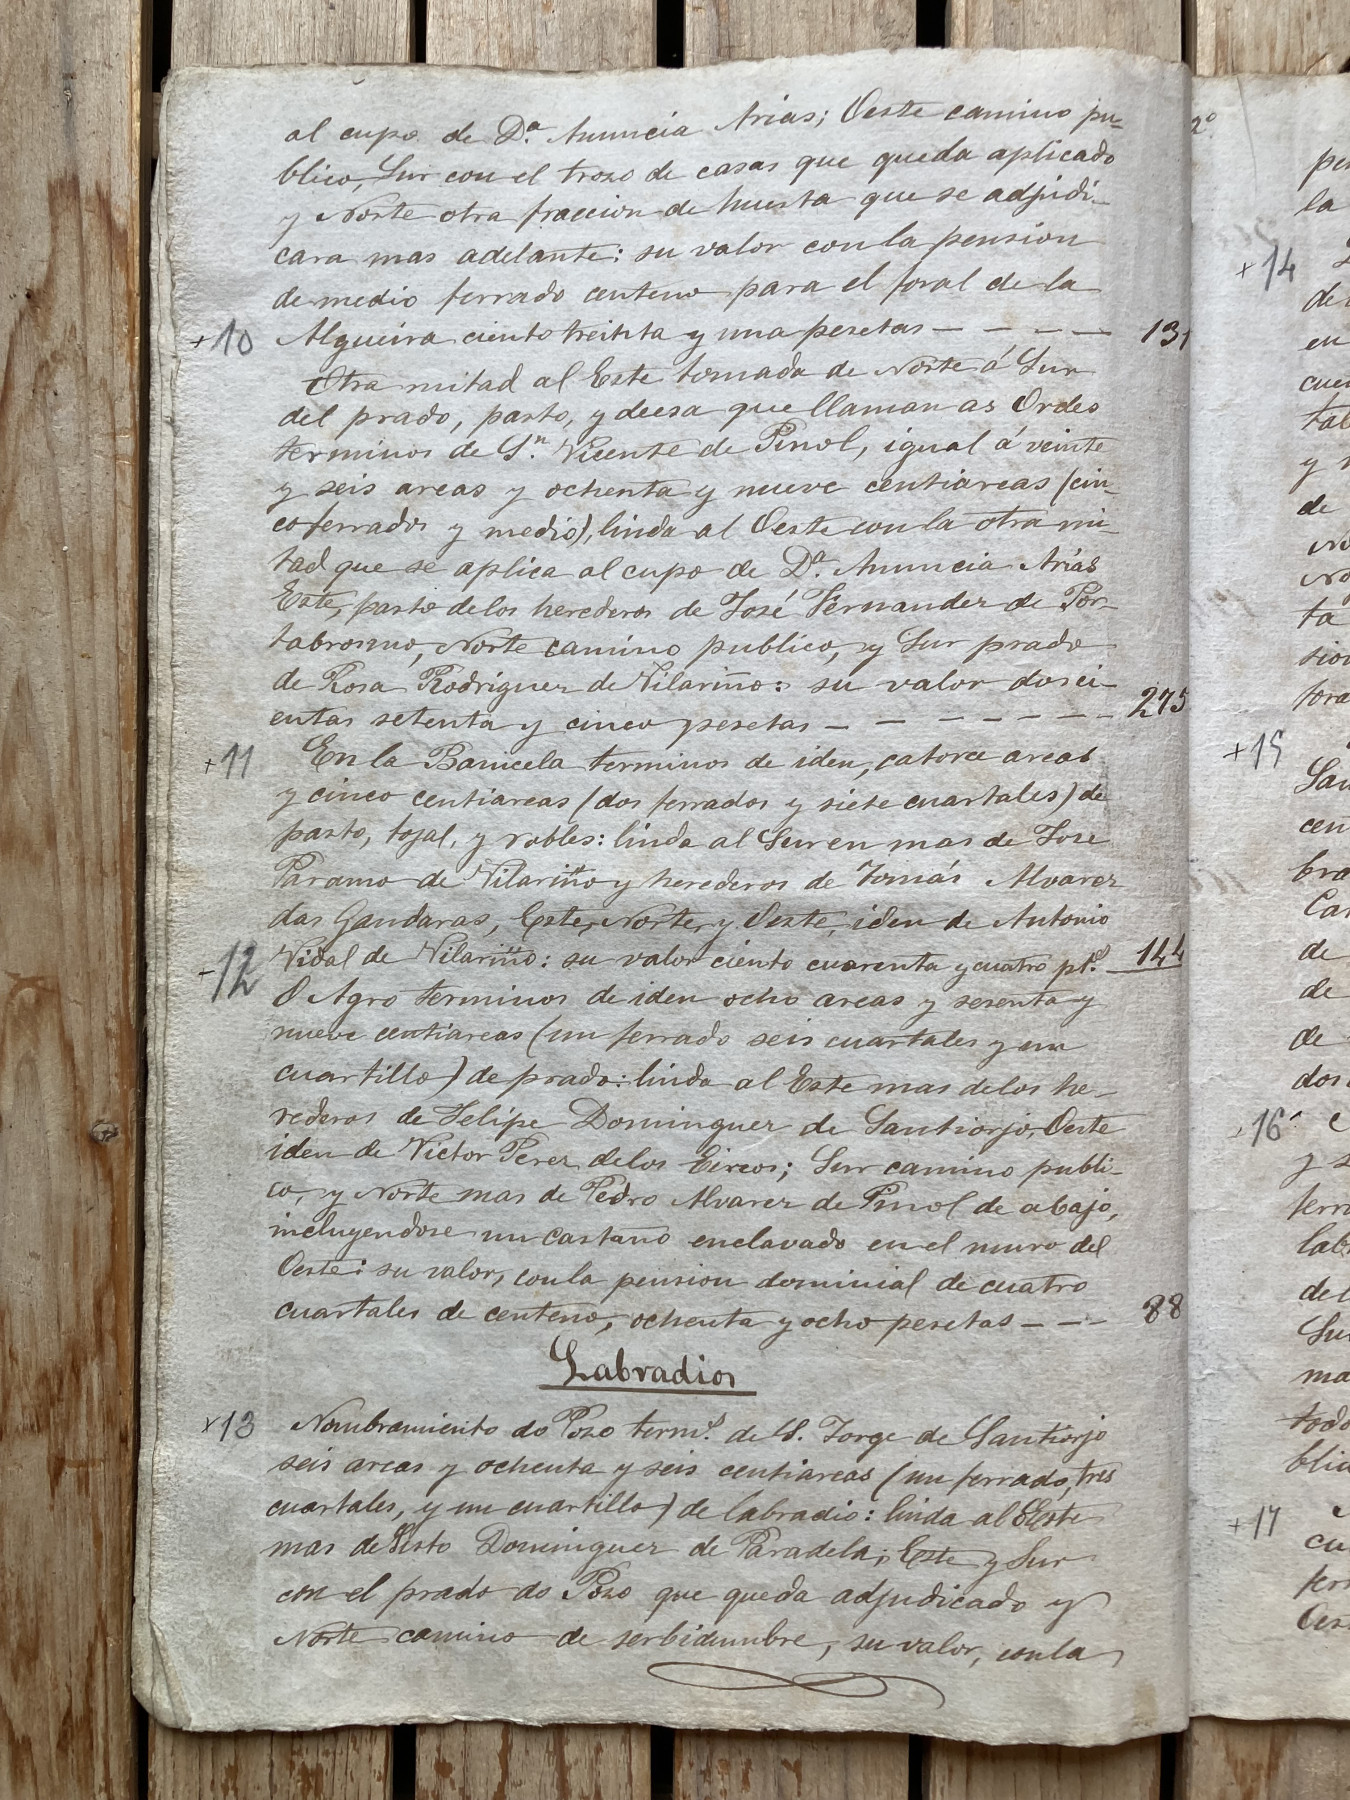 al cupo de D.ª Anuncia Arias; Oeste camino pu-
blico, Sur con el trozo de casas que queda aplicado
y Norte otra fraccion de huerta que se adjudi-
cara mas adelante: su valor con la pension
de medio ferrado centeno para el foral de la
+10 Algueira ciento treinta y una pesetas — — — — 131
Otra mitad al Este tomada de Norte á Sur
del prado, pasto, y deesa que llaman as Ordes
terminos de S.n Vicente de Pinol, igual á veinte
y seis areas y ochenta y nueve centiareas (cin-
co ferrados y medio), linda al Oeste con la otra mi-
tad que se aplica al cupo de D.ª Anuncia Arias
Este, pasto de los herederos de José Fernandez de Por-
tabrosmo, Norte camino publico, y Sur prado
de Rosa Rodriguez de Vilariño: su valor dosci-
entas setenta y cinco pesetas — — — — — — — 275
+11 En la Banicela terminos de iden, catorce areas
y cinco centiareas (dos ferrados y siete cuartales) de
pasto, tojal, y robles: linda al Sur en mas de Jose
Paramo de Vilariño y herederos de Tomás Alvarez
das Gandaras, Este, Norte, y Oeste, iden de Antonio
Vidal de Vilariño: su valor ciento cuarenta y cuatro pt.s 144
-12 O Agro terminos de iden ocho areas y sesenta y
nueve centiareas (un ferrado seis cuartales y un
cuartillo) de prado: linda al Este mas de los he-
rederos de Felipe Dominguez de Santiorjo, Oeste
iden de Victor Perez de los Eireos; Sur camino publi-
co, y Norte mas de Pedro Alvarez de Pinol de abajo,
incluyendose un castaño enclavado en el muro del
Oeste: su valor, con la pension dominial de cuatro
cuartales de centeno, ochenta y ocho pesetas — — — 88
Labradios
+13 Nombramiento do Pozo term.s de S. Jorge de Santiorjo
seis areas y ochenta y seis centiareas (un ferrado, tres
cuartales, y un cuartillo) de labradio: linda al Este
mas de Sisto Dominguez de Paradela; Este y Sur
con el prado do Pozo que queda adjudicado y
Norte camino de serbidumbre, su valor, con la
2º
la
+14
de
en
y
de
ta
+15
de
de
de
16
y
+17